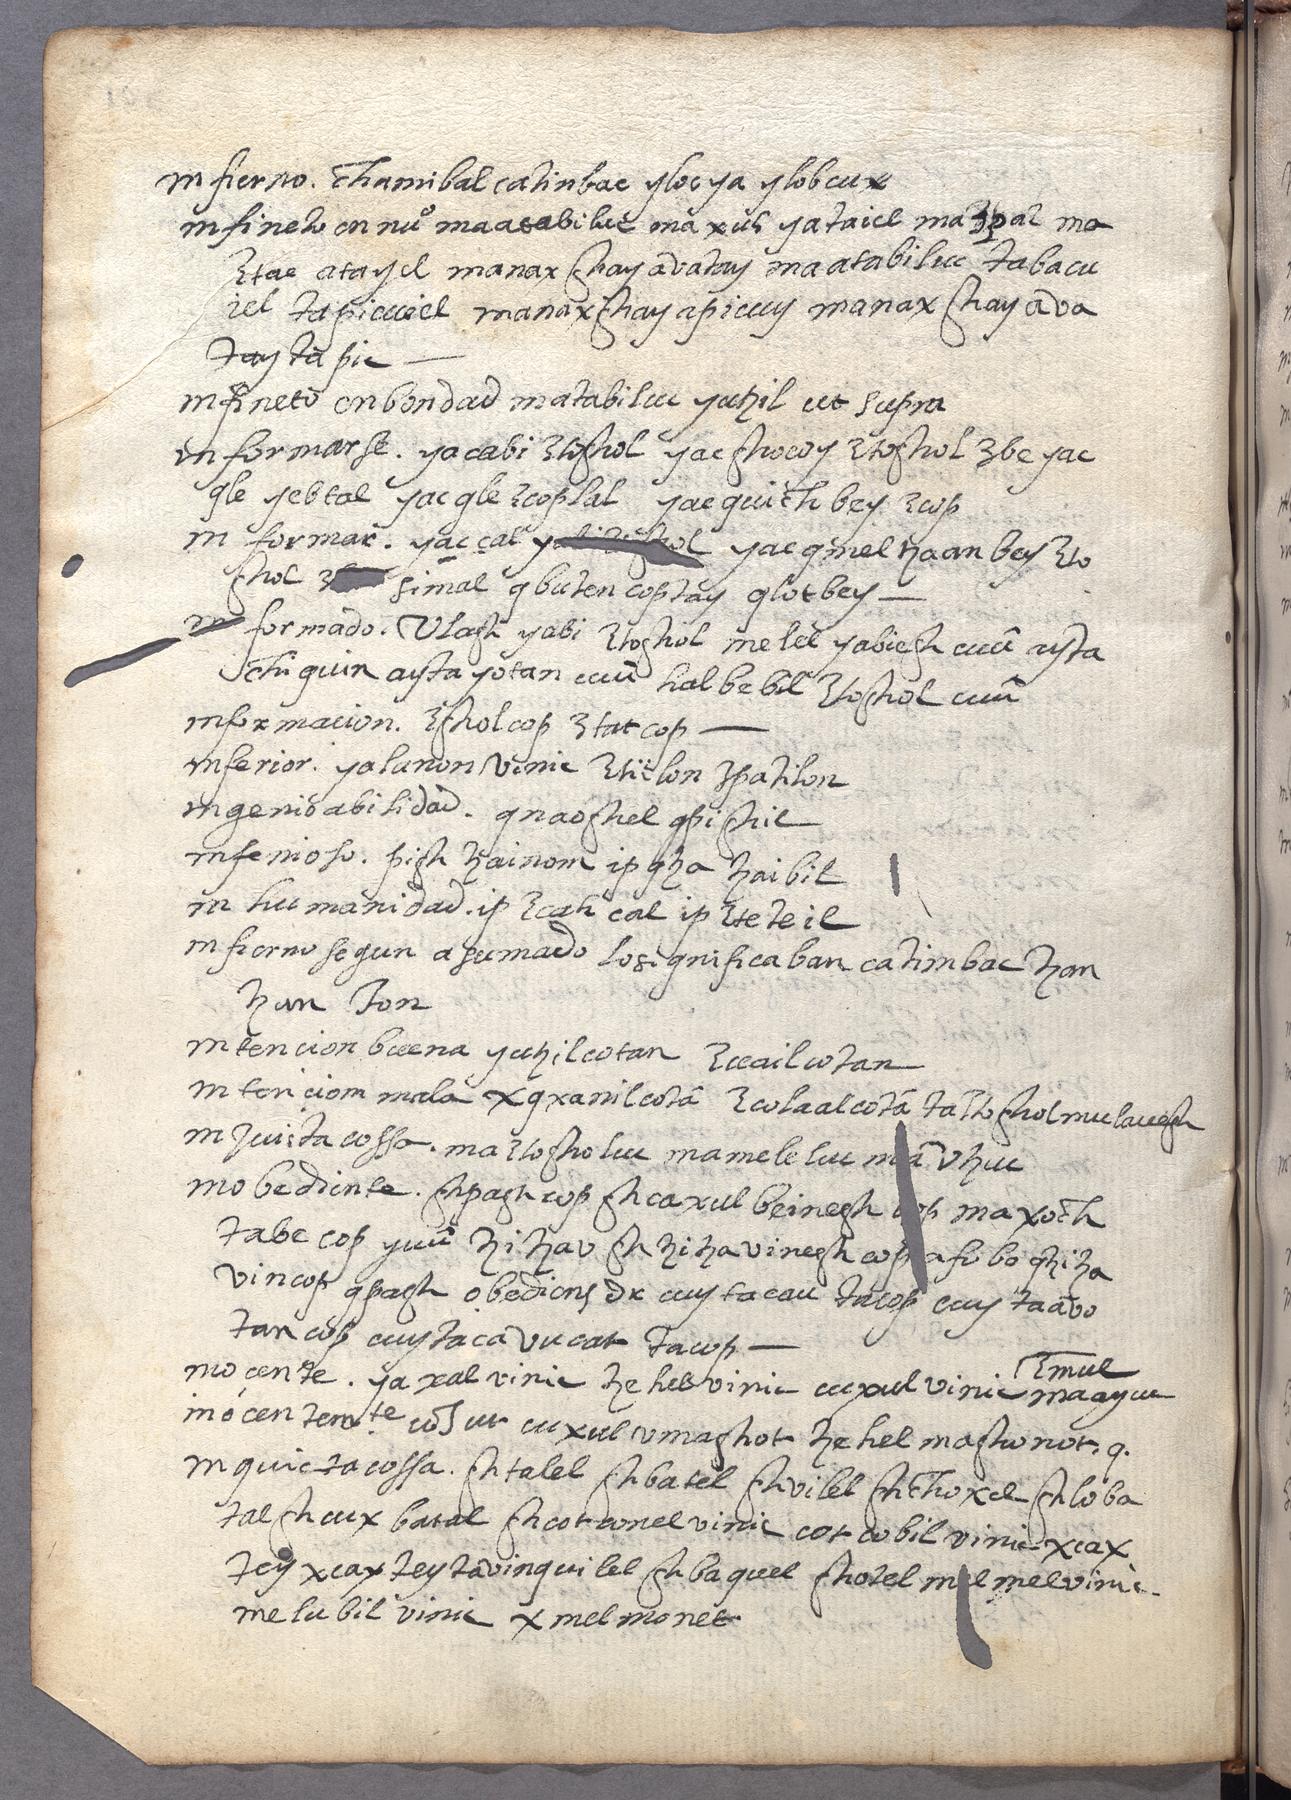 infierno. Thanibal catinbac yloc ya ylob cux
infineto en nu.o maatabiluc maxus yataiel ma pat ma
ztac atayel manax ghay avatay maatabiluc tabacu
iel tapicuiel manax ghay apicuy manax ghay ava
tay ta pic —
infineto en bondad matabiluc yutzil ut supra
informarse. yacabi ztoghol yac ghocoy ztoghol zbe yac
qle yebtal yac qle zcoplal yac quich bey zcop
informar. yac cal yacqmel tzaan bey zto
ghol simal q buten coptay qlot bey —
informado. Vlagh yabi ztoghol melel yabiegh cuū ayta
chiquin ayta yotan cuū hal be bil ztoghol cuū
informacion. zghol cop ztat cop —
inferior. yalanon vinic ztiilon zpatilon
ingenio abilidad. qnaoghel qpighil
infenioso. pigh tzainom ip qtza tzaibil
in humanidad. ip zcah cal ip zteteil
infierno segun asumado losignificaban catimbac tzan
tzan ton
intencion buena yutzil cotan zceail cotan
intenciom mala xqxanil cotā zcolaal cotā ta ztoghol mulauegh
injuista cossa. ma ztogholuc mameleluc mā vtzuc
inobediente. ghpagh cop ghcaxul beinegh cop maxoch
tabe cop yuū tzitzav gh tzitzavinegh cop afibo qtzitza
vincop qpagh obediens dr cuy tacau tacop cuy taavo
tan cop cuytaca vucat tacop —
inocente. ya xal vinic tzehel vinic cuxul vinic zmul maayuc
inocentemte cuxul vmaghot tzehel maghonot. q.
inquieta cossa. ghtalel ghbatel ghvilel ghchoxel ghloba
tal ghcux batal ghcotconel vinic cot cobil vinic xcax
tey xcax tey tavinquilel ghbaquel ghotel mel mel vinic.
melubil vinic x mel monet